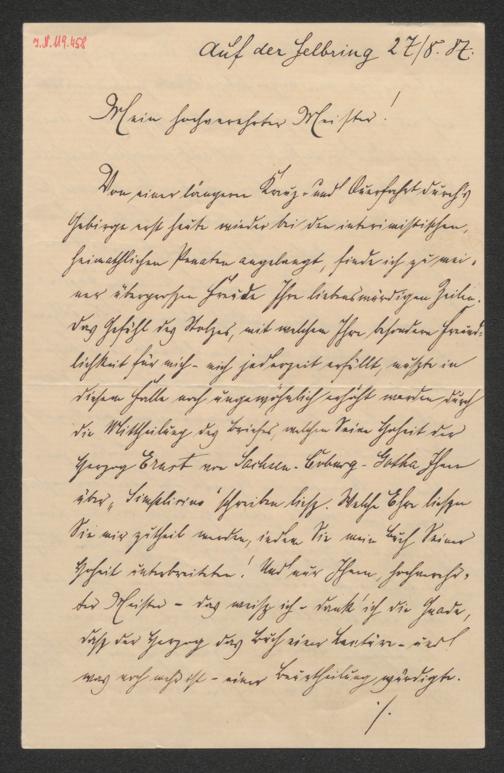 I.N. 119.458
Auf der Helbring 27/8. 87.
Mein hochverehrter Meister!
Von einer längern Kreuz- und Querfahrt durch's
Gebirge erst heute wieder bei den interimistischen,
heimathlichen Penaten angelangt, finde ich zu mei-
ner übergroßen Freude Ihre liebenswürdigen Zeilen.
Das Gefühl des Stolzes, mit welchem Ihre besondere Freund-
lichkeit für mich - mich jederzeit erfüllt, mußte in
diesem Falle noch ungewöhnlich erhöht werden durch
die Mittheilung des Briefes, welchen Seine Hoheit der
Herzog Ernst von Sachsen-Coburg-Gotha Ihnen
über " schreiben ließ. Welche Ehre ließen
Sie mir zutheil werden, indem Sie mein Buch Seiner
Hoheit unterbreiteten! Und nur Ihnen, hochverehr-
ter Meister - das weiß ich - dank' ich die Gnade,
daß der Herzog das Buch einer Lectüre - und
was noch mehr ist - einer Beurtheilung würdigte.
./.